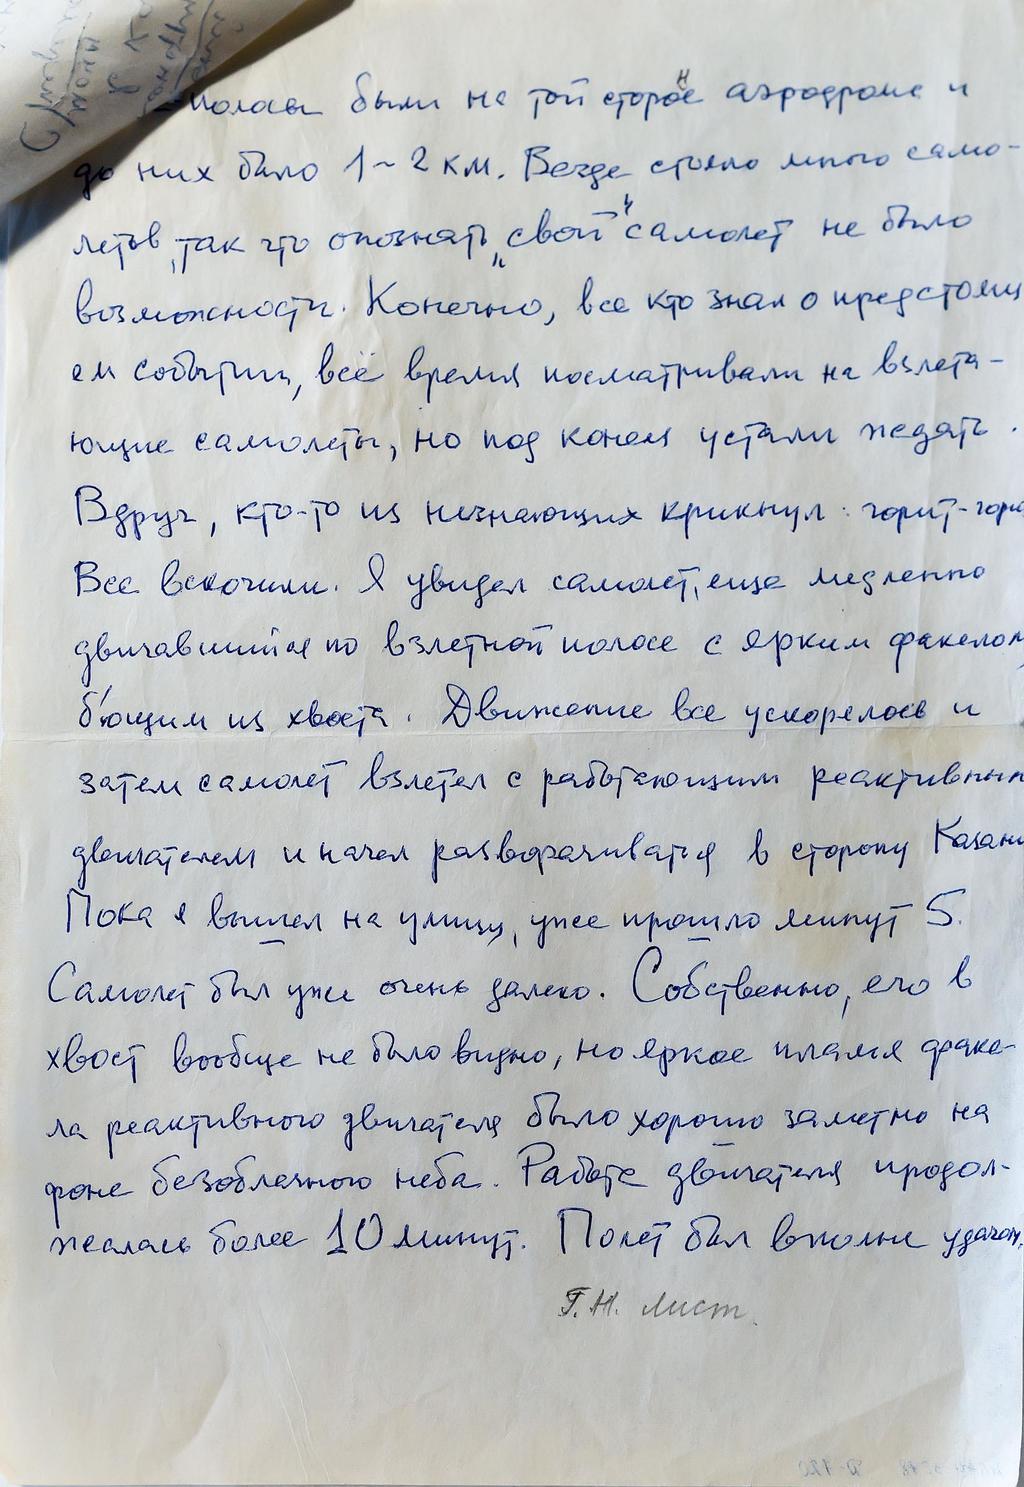 полосы были на той стороне аэродрома и
до них было 1-2 км. Везде стояло много само-
летов, так что опознать „свой“ самолет не было
возможности. Конечно, все кто знал о предстоящ
ем событии, всё время посматривали на взлета-
ющие самолеты, но под конец устали ждать.
Вдруг, кто-то из незнающих крикнул: горит-гори
Все вскочили. Я увидел самолет, еще медленно
двигавшийся по взлетной полосе с ярким факелом
б'ющим из хвоста. Движение все ускорялось и
затем самолет взлетел с работающим реактивным
двигателем и начал разворачиваться в сторону Казани
Пока я вышел на улицу, уже прошло минут 5.
Самолет был уже очень далеко. Собственно, его в
хвост вообще не было видно, но яркое пламя факе-
ла реактивного двигателя было хорошо заметно на
фоне безоблачного неба. Работа двигателя продол-
жалась более 10 минут. Полет был вполне удачн.
Г.Н. Лист